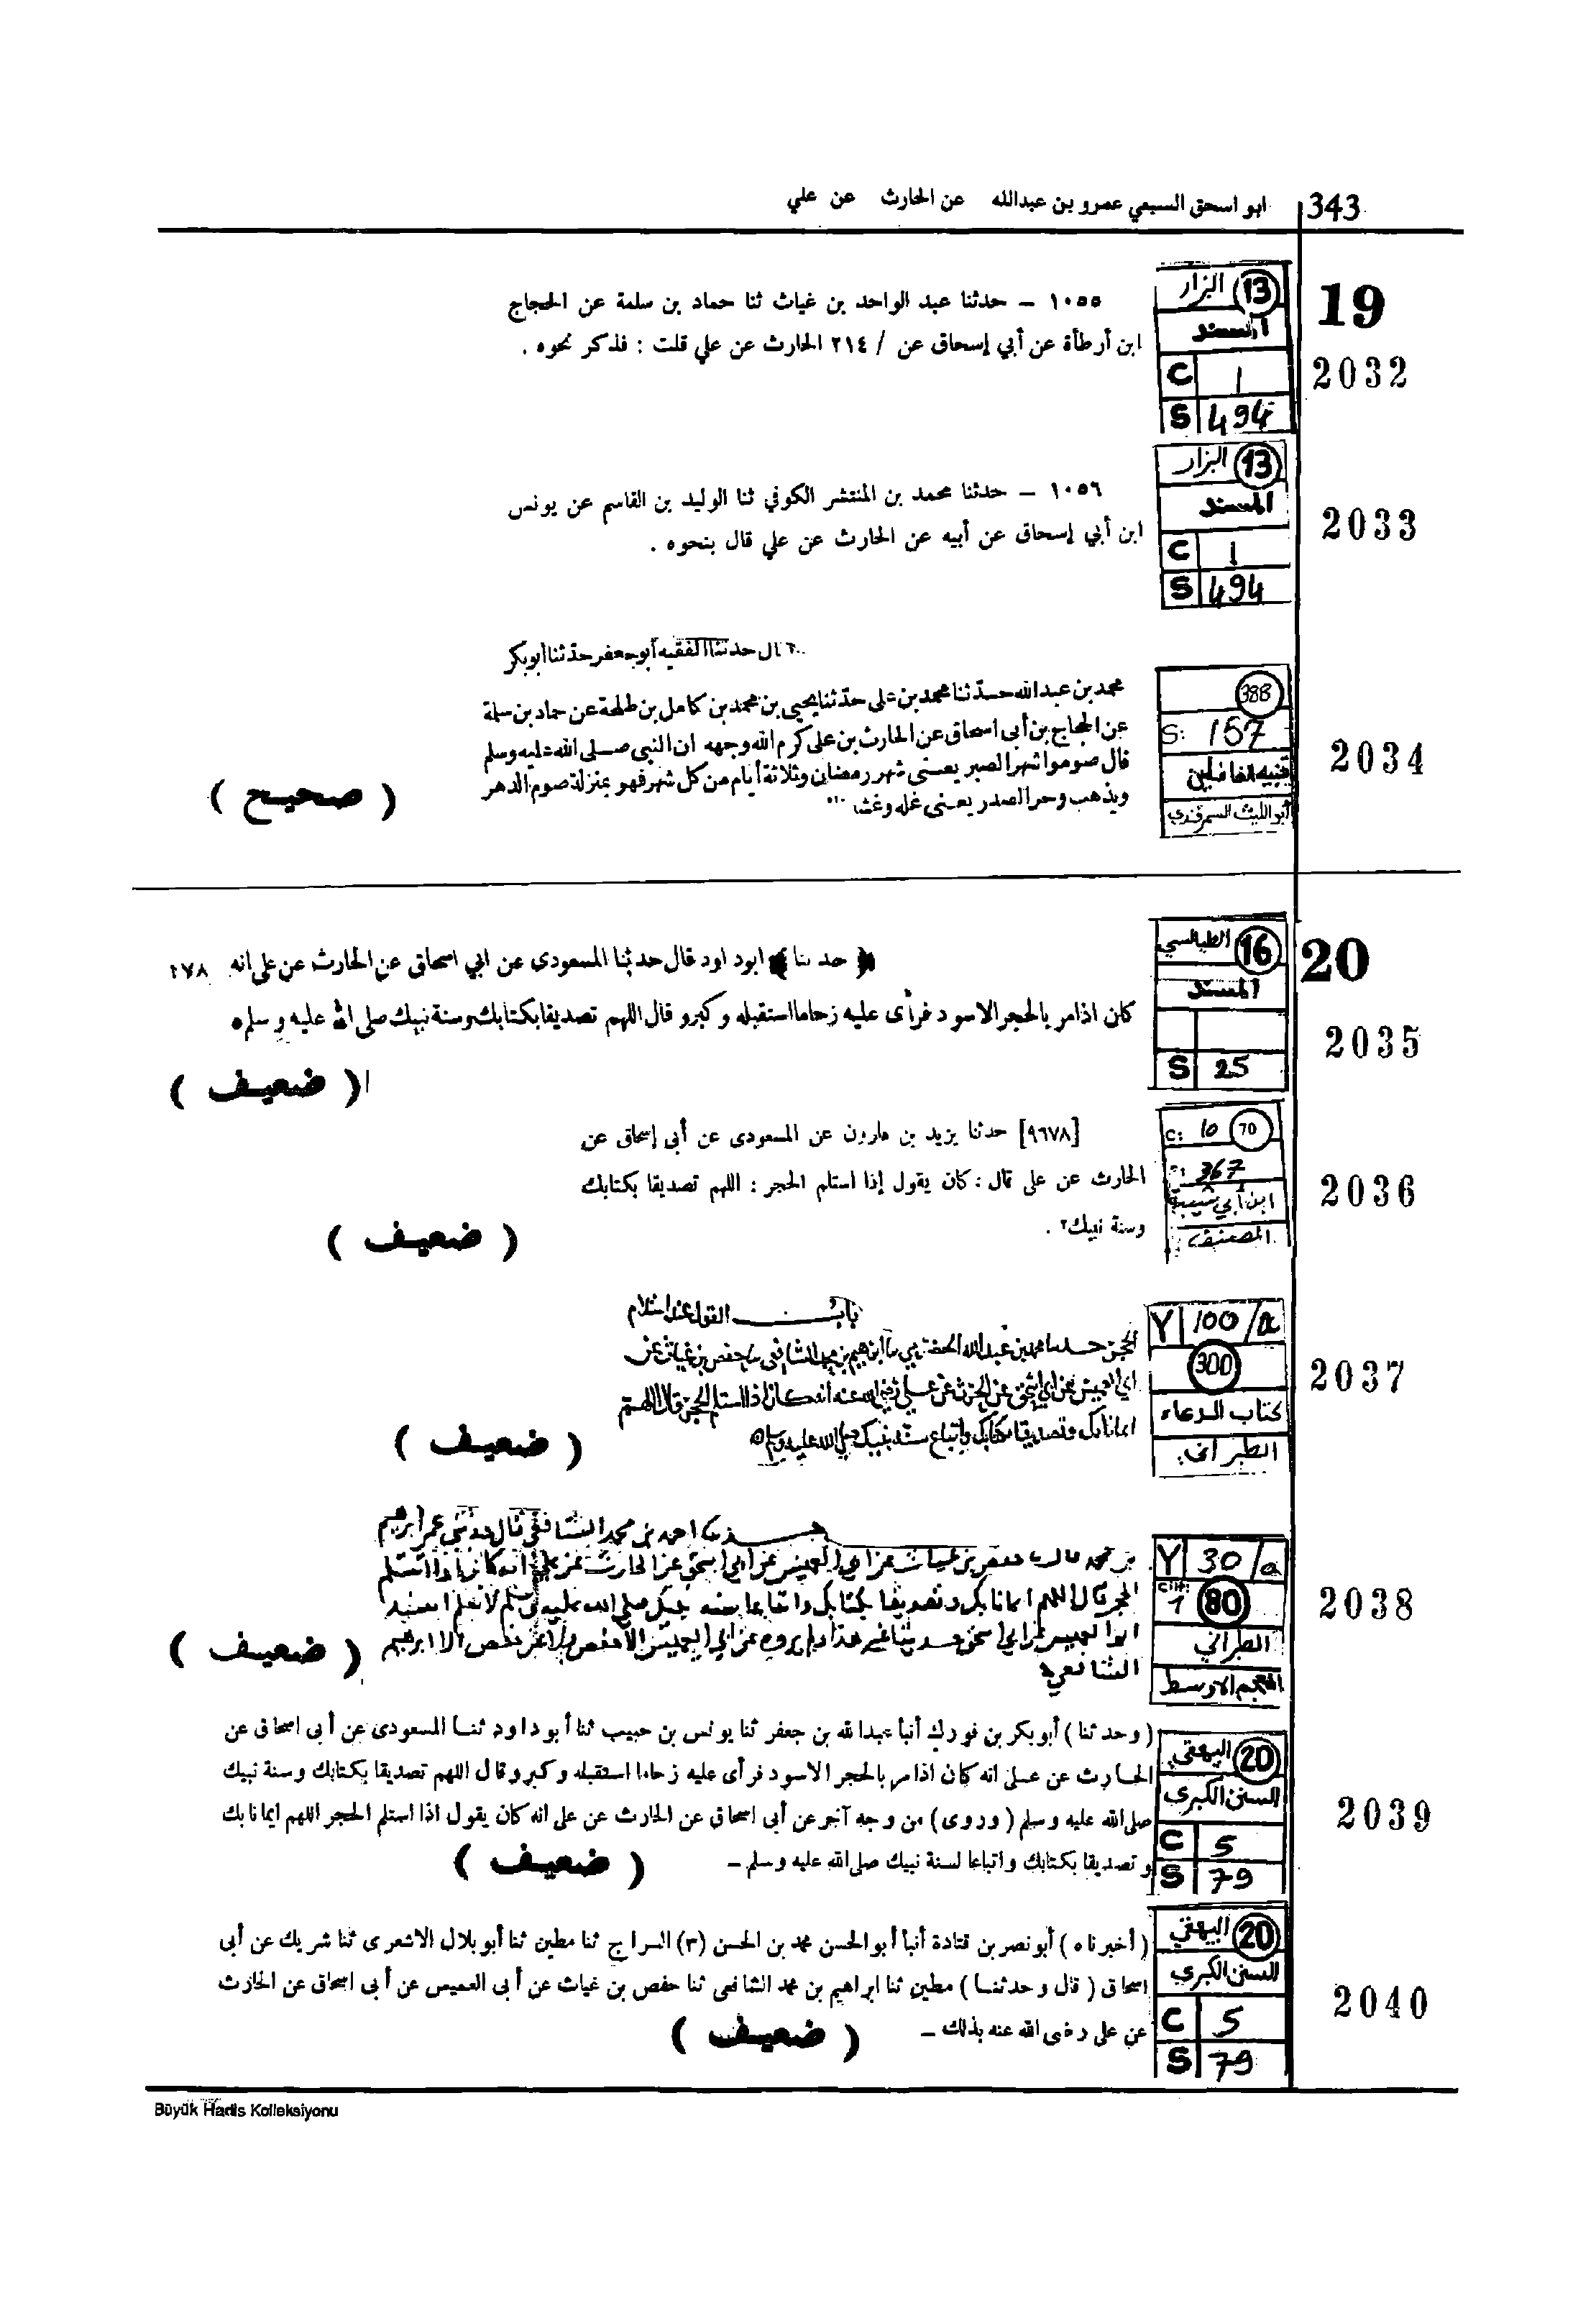 343 ابو اسحق السبيعي عمرو بن عبدالله عن الحارث عن علي
19
2032
البزار 13
المسند
C 1
S 494
١٠٥٥ – حدثنا عبد الواحد بن غياث ثنا حماد بن سلمة عن الحجاج
ابن أرطأة عن أبي إسحاق عن / ٢١٤ الحارث عن علي قلت : فذكر نحوه .
2033
البزار 13
المسند
C 1
S 494
١٠٥٦ – حدثنا محمد بن المنتشر الكوفي ثنا الوليد بن القاسم عن يونس
ابن أبي إسحاق عن أبيه عن الحارث عن علي قال بنحوه .
2034
388
S: 157
تنبيه الغافلين
أبو الليث السمرقندي
قال حدثنا الفقيه أبو جعفر حدثنا أبو بكر
محمد بن عبد الله حدثنا محمد بن على حدثنا يحيى بن محمد بن كامل بن طلحة عن حماد بن سلمة
عن الحجاج بن أبى اسحاق عن الحارث بن على كرم الله وجهه ان النبي صلى الله عليه وسلم
قال صوموا شهر الصبر يعنى شهر رمضان وثلاثة أيام من كل شهر فهو بمنزلة صوم الدهر
ويذهب وحر الصدر يعنى غله وغشه
( صحيح )
20
2035
الطيالسي 16
المسند
S 25
﴿ حدثنا ﴾ ابو داود قال حدثنا المسعودى عن ابي اسحاق عن الحارث عن على انه ١٧٨
كان اذا مر بالحجر الاسود فرأى عليه زحاما استقبله وكبر وقال اللهم تصديقا بكتابك وسنة نبيك صلى الله عليه وسلم ه
( ضعيف )
2036
C: 10 70
367
ابن أبي شيبة
المصنف
[٩٦٧٨] حدثنا يزيد بن هارون عن المسعودى عن أبى إسحاق عن
الحارث عن على قال : كان يقول إذا استلم الحجر : اللهم تصديقا بكتابك
وسنة نبيك٢ .
( ضعيف )
2037
Y 100/a
300
كتاب الدعاء
الطبرانى
باب القول عند استلام
الحجر حدثنا محمد بن عبد الله الحضرمي ثنا ابراهيم بن محمد الشافعي ثنا حفص بن غياث عن
ابي العميس عن ابي اسحق عن الحرث عن علي رضي الله عنه انه كان اذا استلم الحجر قال اللهم
ايمانا بك وتصديقا بكتابك واتباع سنة نبيك صلى الله عليه وسلم
( ضعيف )
2038
Y 30/a
Cilt: 1 80
الطبراني
المعجم الاوسط
حدثنا احمد بن محمد الشافعي قال حدثني عمي ابرهيم
بن محمد قال حدثنا حفص بن غياث عن ابي العميس عن ابي اسحق عن الحارث عن علي انه كان اذا استلم
الحجر قال اللهم ايمانا بك وتصديقا بكتابك واتباعا سنة نبيك صلى الله عليه وسلم لا نعلم اسند
ابو العميس عن ابي اسحق حديثا غير هذا ولم يروه عن ابي العميس الا حفص ولا عن حفص الا ابرهيم
الشافعي
( ضعيف )
2039
البيهقي 20
السنن الكبرى
C 5
S 79
( وحدثنا ) أبو بكر بن فورك أنبأ عبد الله بن جعفر ثنا يونس بن حبيب ثنا أبو داود ثنا المسعودى عن أبى اسحاق عن
الحارث عن على انه كان اذا مر بالحجر الاسود فرأى عليه زحاما استقبله وكبر وقال اللهم تصديقا بكتابك وسنة نبيك
صلى الله عليه وسلم ( وروى ) من وجه آخر عن أبى اسحاق عن الحارث عن على انه كان يقول اذا استلم الحجر اللهم ايمانا بك
و تصديقا بكتابك واتباعا لسنة نبيك صلى الله عليه وسلم –
( ضعيف )
2040
البيهقي 20
السنن الكبرى
C 5
S 79
( أخبرناه ) أبو نصر بن قتادة أنبأ أبو الحسن محمد بن الحسن (٣) السراج ثنا مطين ثنا أبو بلال الاشعرى ثنا شريك عن أبى
اسحاق ( قال وحدثنا ) مطين ثنا ابراهيم بن محمد الشافعى ثنا حفص بن غياث عن أبى العميس عن أبى اسحاق عن الحارث
عن على رضى الله عنه بذلك –
( ضعيف )
Büyük Hadis Kolleksiyonu